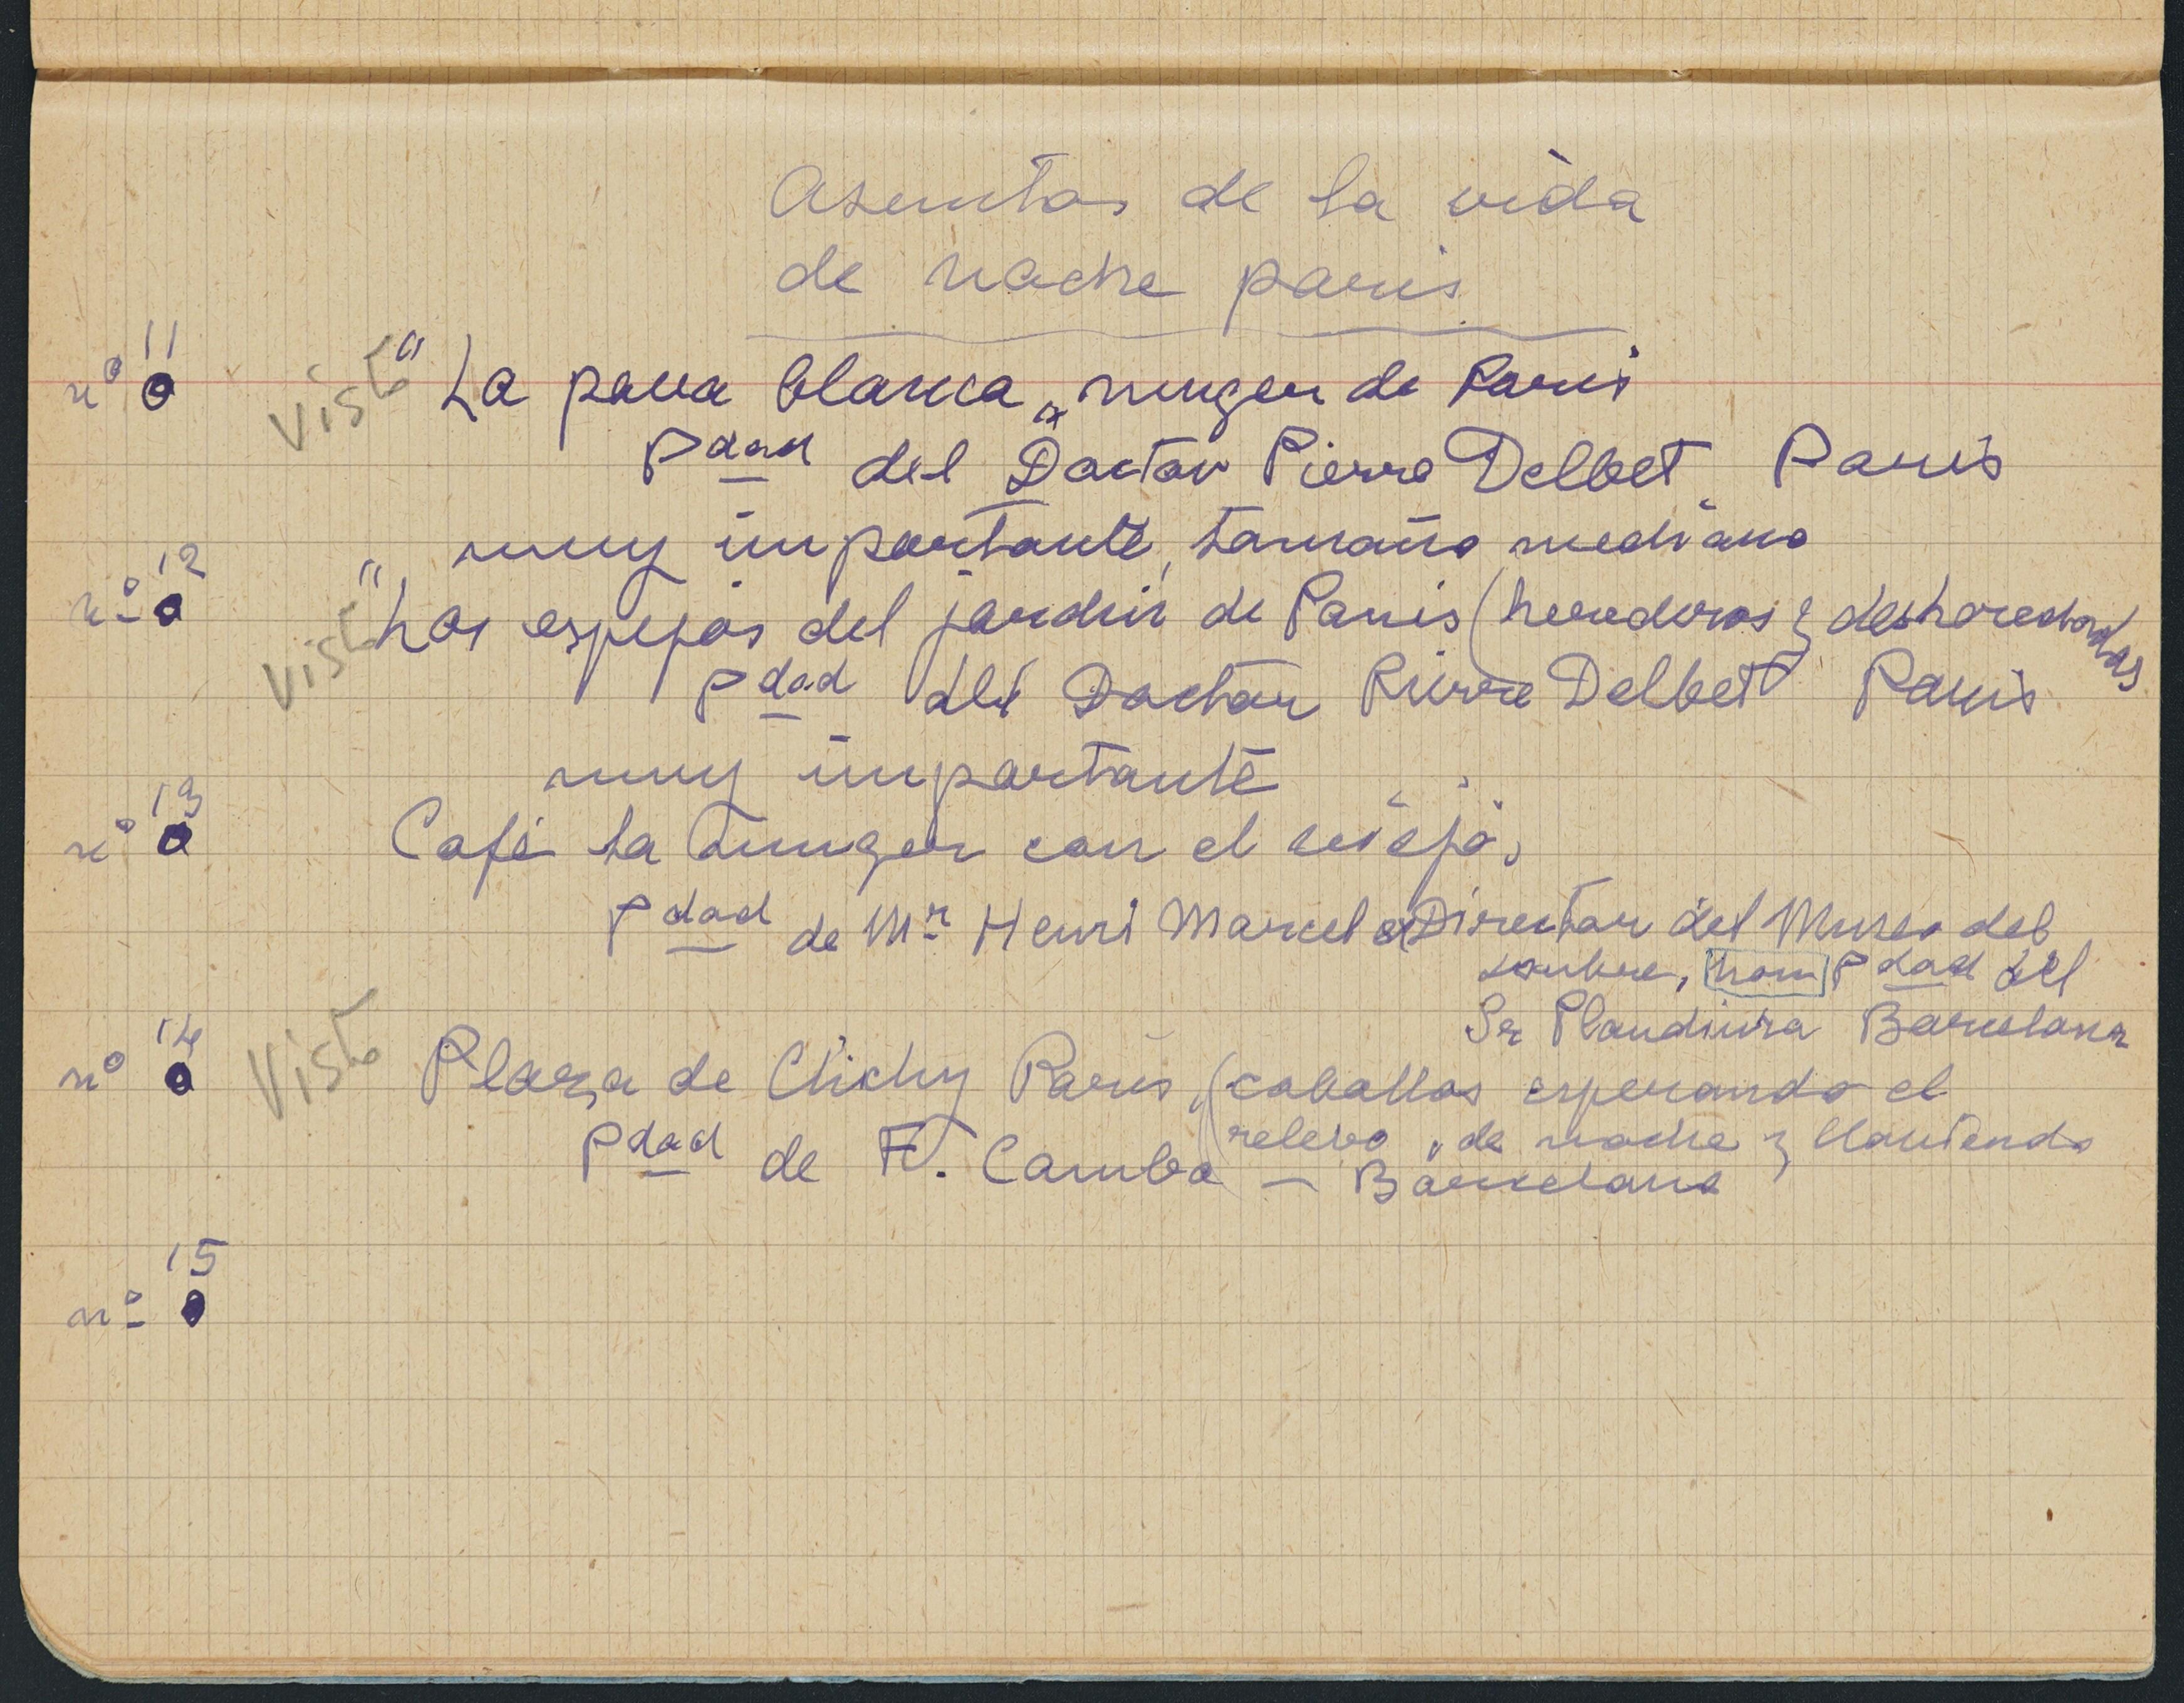 Asuntos de la vida
de noche paris
nº 11 Visto "La pava blanca" muger de Paris
Pdad del Doctor Pierre Delbet. Paris
muy importante, tamaño mediano
nº 12 Visto "Los espejos del jardin de Paris (herederos y desheredados
Pdad del Doctor Pierre Delbet Paris
muy importante
nº 13 Café la muger con el viejo,
Pdad de Mr Henri Marcel ex Director del Museo del
Loubre, hoy Pdad del
Sr Plandiura Barcelona
nº 14 Visto Plaza de Clichy Paris, (caballos esperando el
relevo, de noche y lloviendo
Pdad de F. Cambo – Barcelona
nº 15